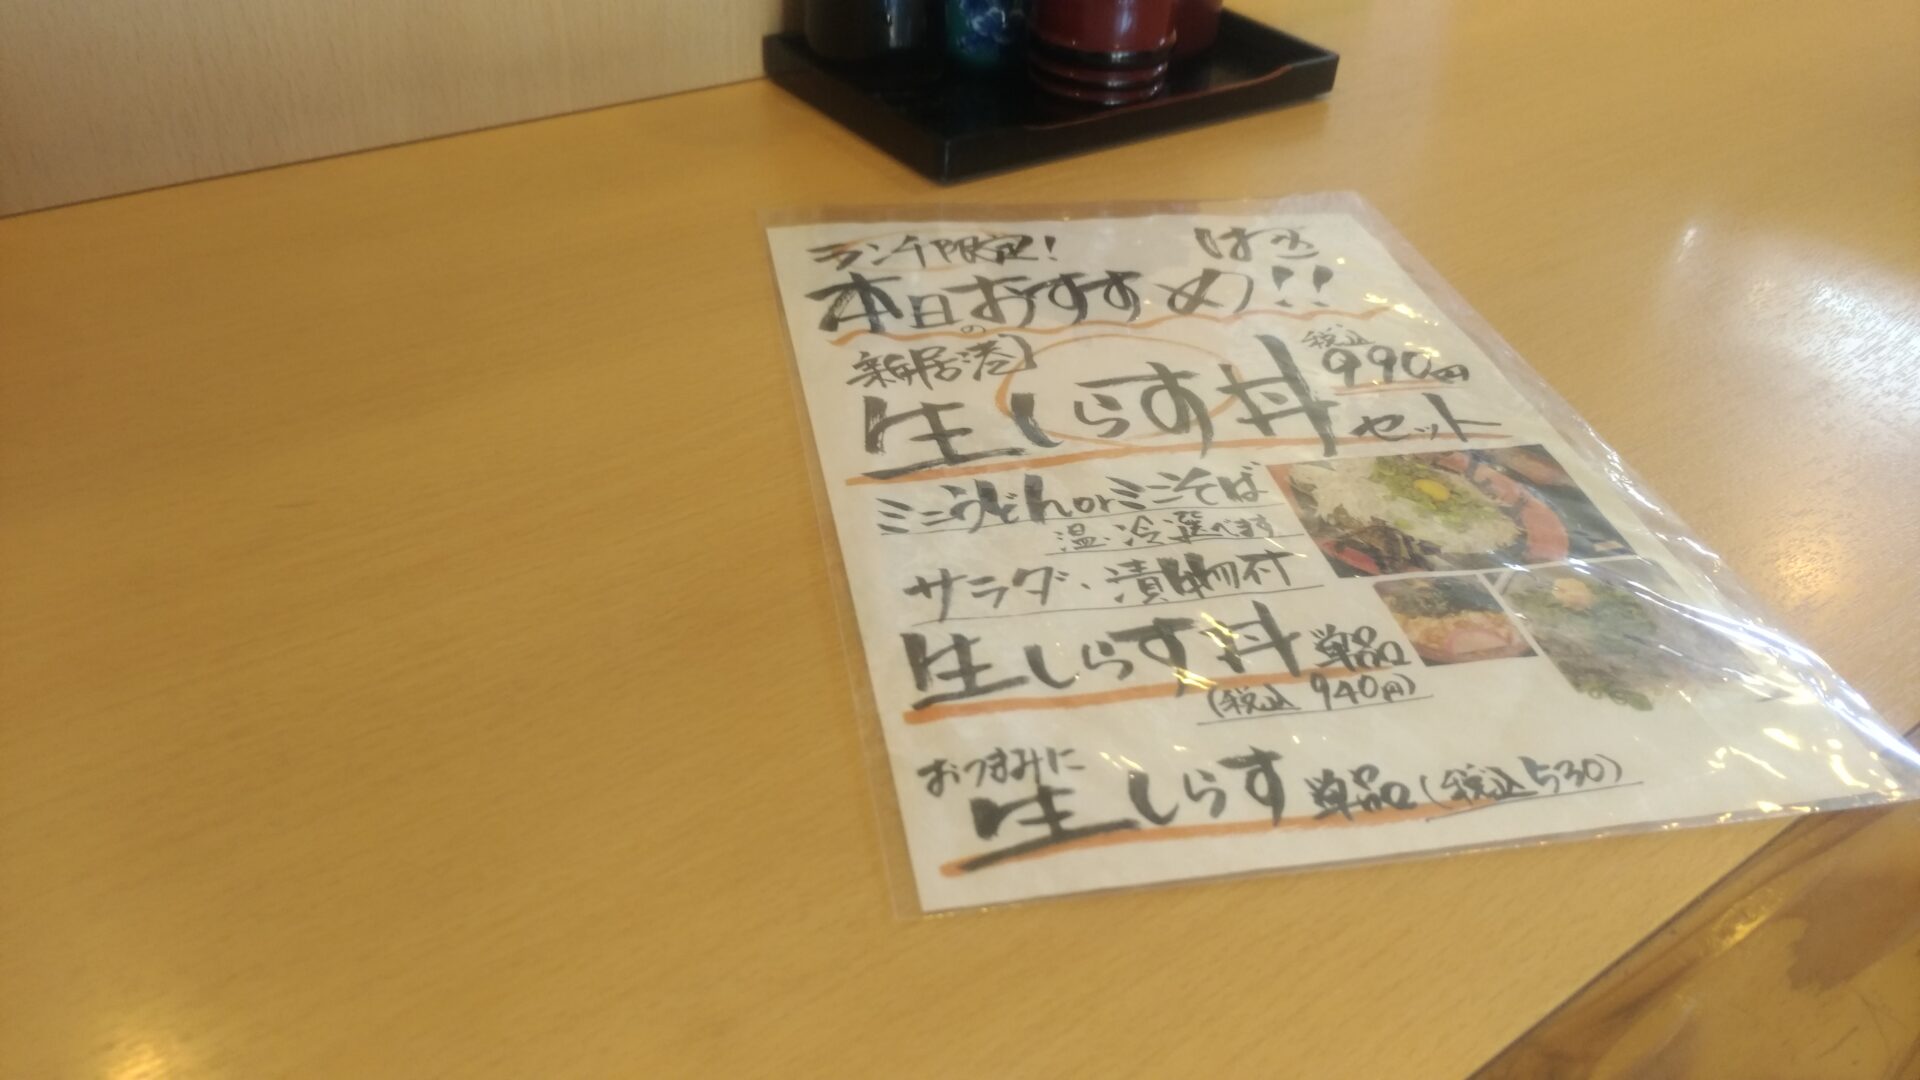 ランチ限定!
本日のおすすめ!!
新居港
生しらす丼セット
税込
990円
ミニうどんorミニそば
温・冷選べます
サラダ・漬物付
生しらす丼 単品
(税込 940円)
おつまみに
生しらす 単品(税込530)